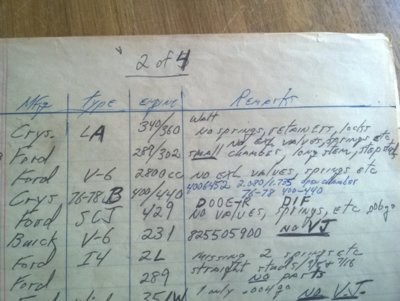 2 of 4
Mfg type engine Remarks
Crys. LA 340/360 No springs, retainers, locks
Ford 289/302 no exh valves, springs etc
small chamber, long stem,
Ford V-6 2800cc No exh valves, springs etc
4006452 2.080/1.755 chamber
Crys. 76-78 B 400/440 76-78 400-440
Ford SCJ 429 DOOE-R DIF
No values, springs, etc.
Buick V-6 231 825505900 NO VJ
Ford I4 2L missing 2 springs etc
Ford 289 straight studs, 3/8 x 7/16
NO parts
351W 1 only .004 NO VJ